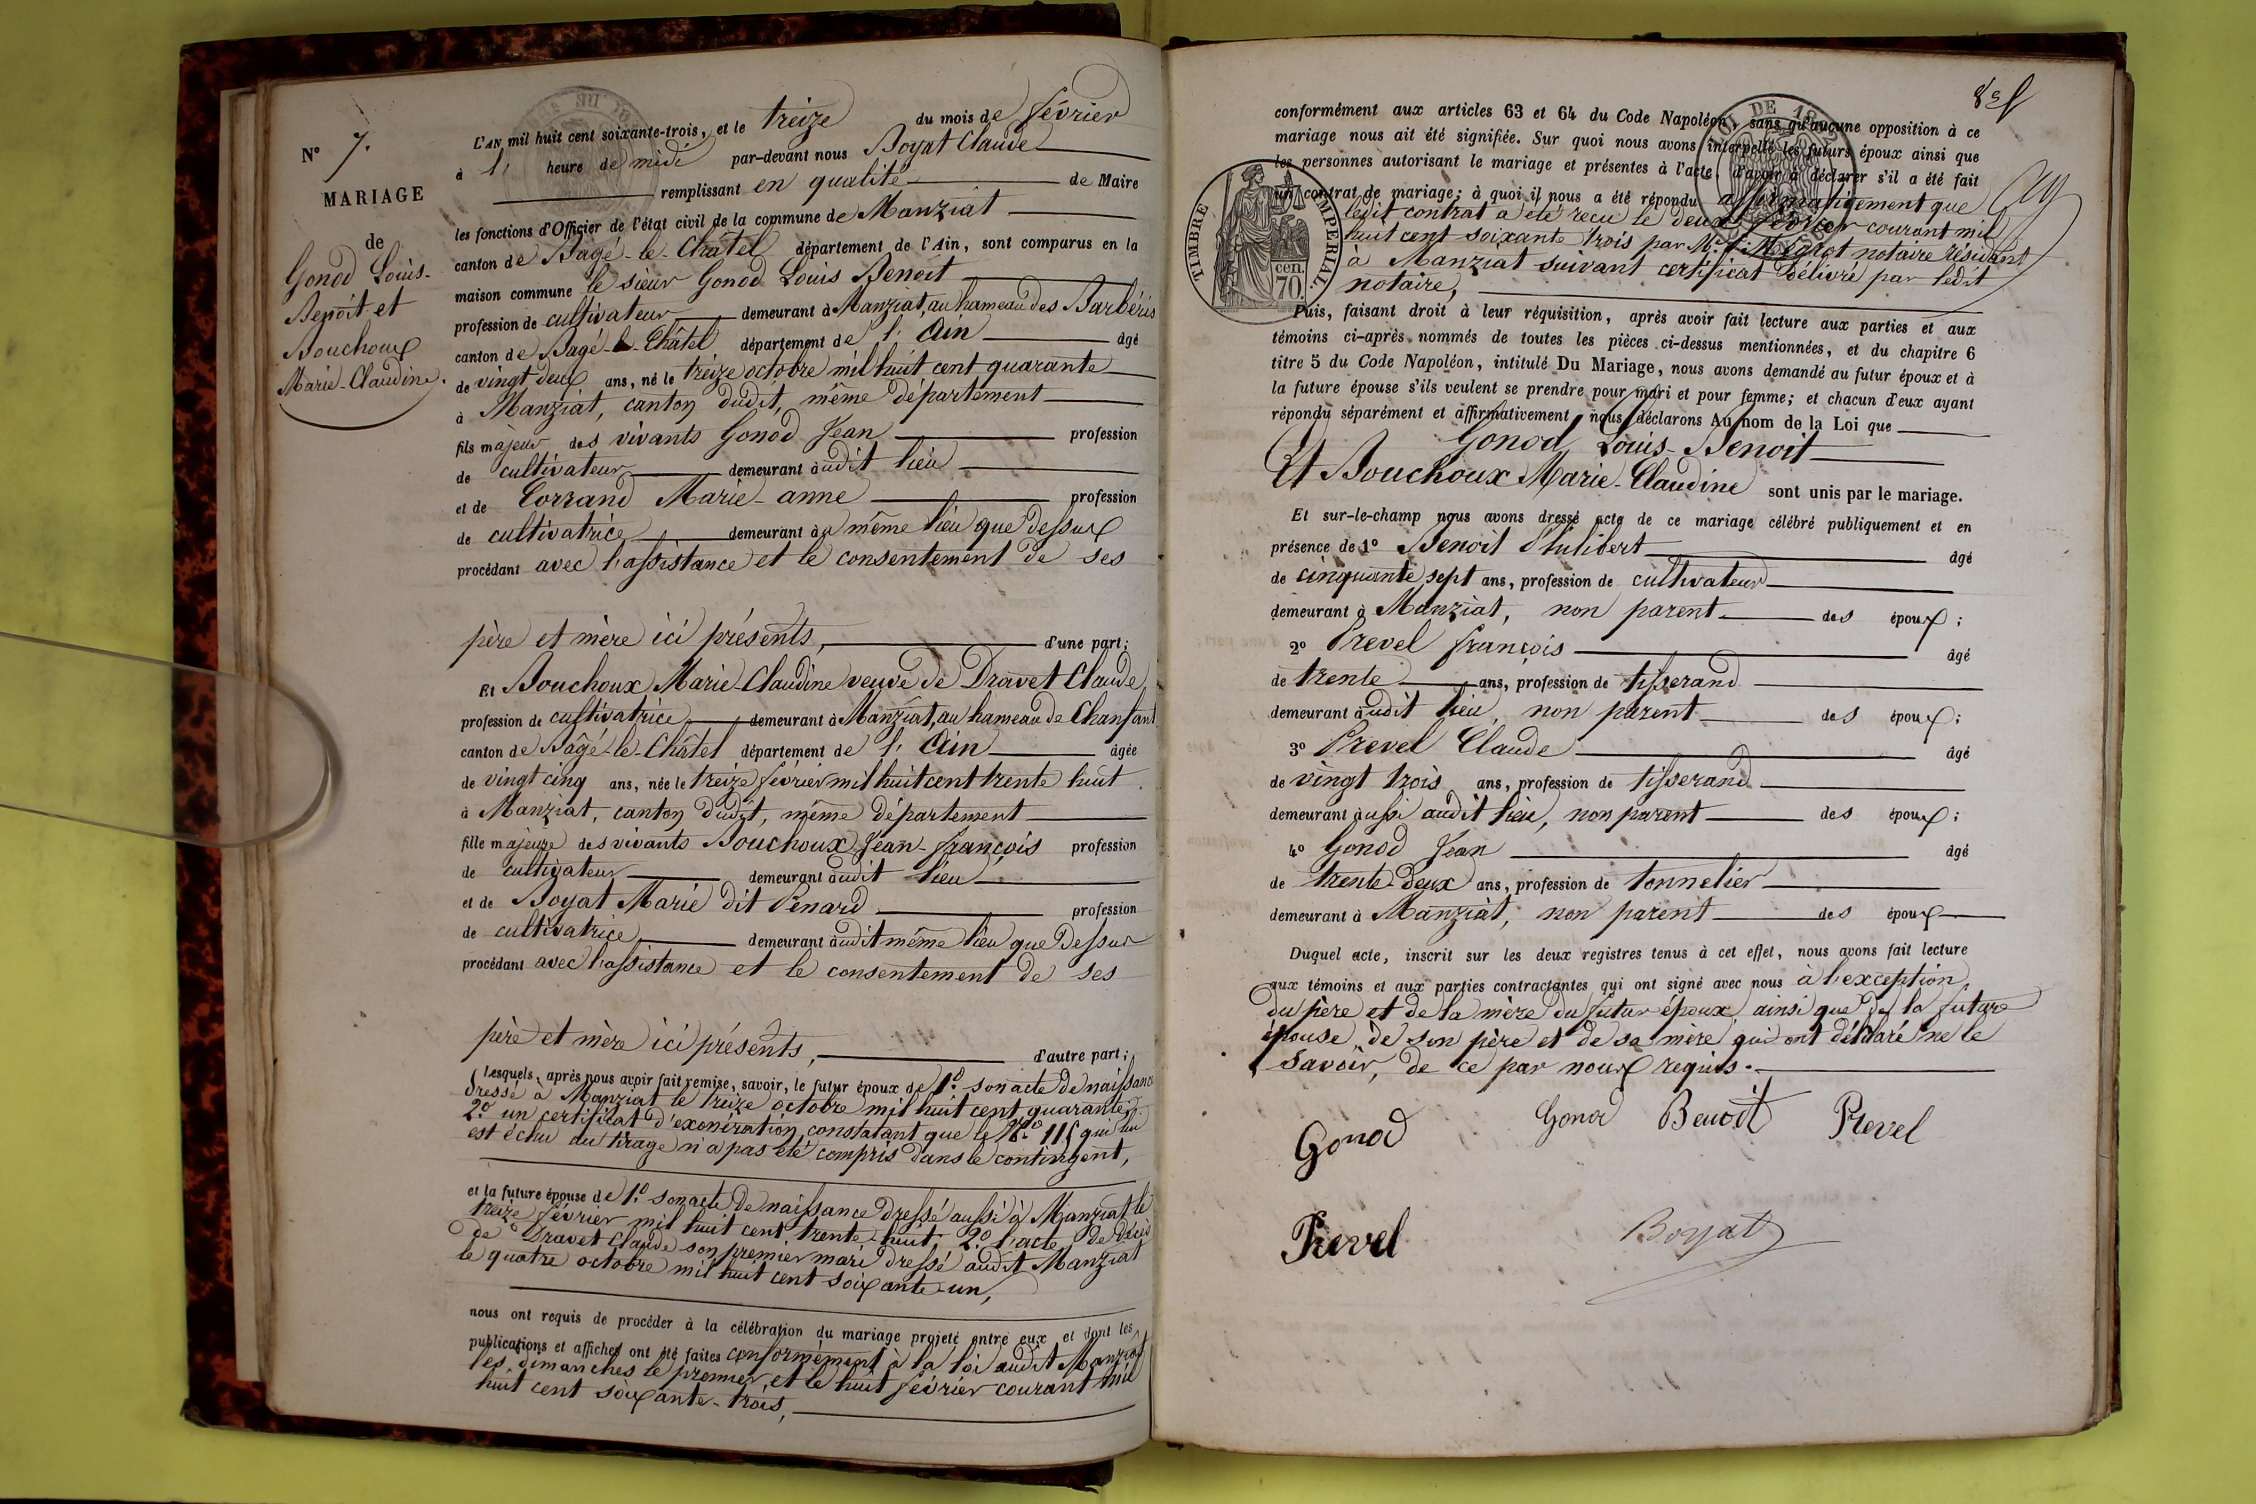 N° 7.
MARIAGE
de
Gonod Louis-
Benoît et
Bouchoux
Marie-Claudine.
L'AN mil huit cent soixante-trois, et le treize du mois de février
à l' heure de midi par-devant nous Boyat Claude
remplissant en qualité de Maire
les fonctions d'Officier de l'état civil de la commune de Manziat
canton de Bagé-le-Châtel département de l'Ain, sont comparus en la
maison commune le sieur Gonod Louis Benoit
profession de cultivateur demeurant à Manziat, au hameau des Barbéris
canton de Bagé-le-Châtel département de l'Ain âgé
de vingt deux ans, né le treize octobre mil huit cent quarante
à Manziat, canton dudit, même département
fils majeur des vivants Gonod Jean profession
de cultivateur demeurant audit lieu
et de Corrand Marie-anne profession
de cultivatrice demeurant au même lieu que dessus
procédant avec l'assistance et le consentement de ses
père et mère ici présents, d'une part;
Et Bouchoux Marie-Claudine veuve de Dravet Claude
profession de cultivatrice demeurant à Manziat, au hameau de Chanfant
canton de Bâgé-le-Châtel département de l'Ain âgée
de vingt cinq ans, née le treize février mil huit cent trente huit
à Manziat, canton dudit, même département
fille majeure des vivants Bouchoux Jean-françois profession
de cultivateur demeurant audit lieu
et de Boyat Marie dit Penard profession
de cultivatrice demeurant audit même lieu que dessus
procédant avec l'assistance et le consentement de ses
père et mère ici présents, d'autre part;
Lesquels, après nous avoir fait remise, savoir, le futur époux de 1° son acte de naissance
dressé à Manziat le treize octobre mil huit cent quarante;
2° un certificat d'exonération constatant que le N° 115 qui lui
est échu au tirage n'a pas été compris dans le contingent,
et la future épouse de 1° son acte de naissance dressé aussi à Manziat le
treize février mil huit cent trente-huit; 2° l'acte de décès
de Dravet Claude son premier mari dressé audit Manziat
le quatre octobre mil huit cent soixante-un,
nous ont requis de procéder à la célébration du mariage projeté entre eux et dont les
publications et affiches ont été faites conformément à la loi audit Manziat
les dimanches le premier et le huit février courant mil
huit cent soixante-trois,
8e f
conformément aux articles 63 et 64 du Code Napoléon, sans qu'aucune opposition à ce
mariage nous ait été signifiée. Sur quoi nous avons interpellé les futurs époux ainsi que
les personnes autorisant le mariage et présentes à l'acte, d'avoir à déclarer s'il a été fait
un contrat de mariage; à quoi il nous a été répondu affirmativement que
ledit contrat a été reçu le deux février courant mil
huit cent soixante trois par Me notaire résidant
à Manziat suivant certificat délivré par ledit
notaire,
TIMBRE IMPERIAL
70 cen.
Puis, faisant droit à leur réquisition, après avoir fait lecture aux parties et aux
témoins ci-après nommés de toutes les pièces ci-dessus mentionnées, et du chapitre 6
titre 5 du Code Napoléon, intitulé Du Mariage, nous avons demandé au futur époux et à
la future épouse s'ils veulent se prendre pour mari et pour femme; et chacun d'eux ayant
répondu séparément et affirmativement, nous déclarons Au nom de la Loi que
Gonod Louis-Benoit
Et Bouchoux Marie-Claudine sont unis par le mariage.
Et sur-le-champ nous avons dressé acte de ce mariage célébré publiquement et en
présence de 1° Benoit Philibert âgé
de cinquante sept ans, profession de cultivateur
demeurant à Manziat, non parent des époux;
2° Prevel françois âgé
de trente ans, profession de tisserand
demeurant audit lieu, non parent des époux;
3° Prevel Claude âgé
de vingt trois ans, profession de tisserand
demeurant aussi audit lieu, non parent des époux;
4° Gonod Jean âgé
de trente-deux ans, profession de tonnelier
demeurant à Manziat, non parent des époux
Duquel acte, inscrit sur les deux registres tenus à cet effet, nous avons fait lecture
aux témoins et aux parties contractantes qui ont signé avec nous à l'exception
du père et de la mère du futur époux, ainsi que de la future
épouse, de son père et de sa mère qui ont déclaré ne le
savoir, de ce par nous requis.
Gonod Gonod Benoît Prevel
Prevel Boyat